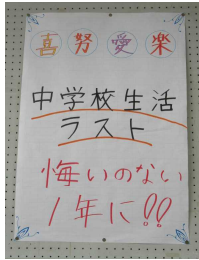 喜努愛楽
中学校生活
ラスト
悔いのない
1年に!!